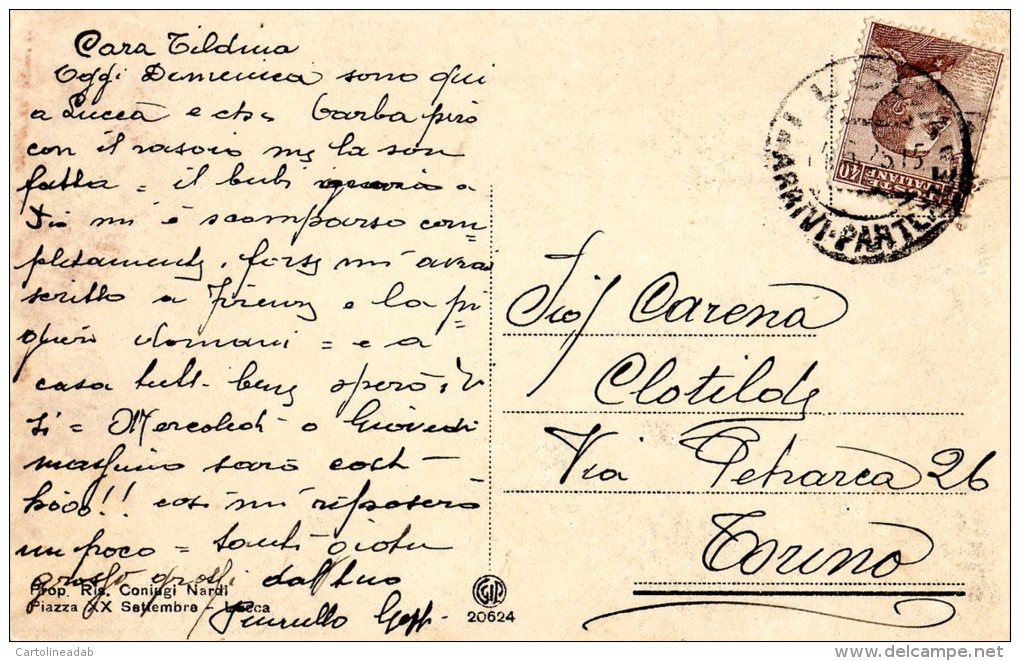 Cara Tildina
Oggi Domenica sono qui
a Lucca e che barba però
con il rasoio me la son
fatta = il bubi
mi è scomparso com=
pletamente, forse mi avrai
scritto a Firenze e la pi=
glierò domani = e a
casa tutti bene spero, 
sì = Mercoledì o Giovedì
massimo sarò costì
così mi riposerò
un poco = tanti
grossi grossi dal tuo
Prop. Ris. Coniugi Nardi
Piazza XX Settembre - Lucca
GIP
20624
LUCCA
ARRIVI-PARTENZE
40
POSTE ITALIANE
Sig Carena
Clotilde
Via Petrarca 26
Torino
Cartolineadab
delcampe.net